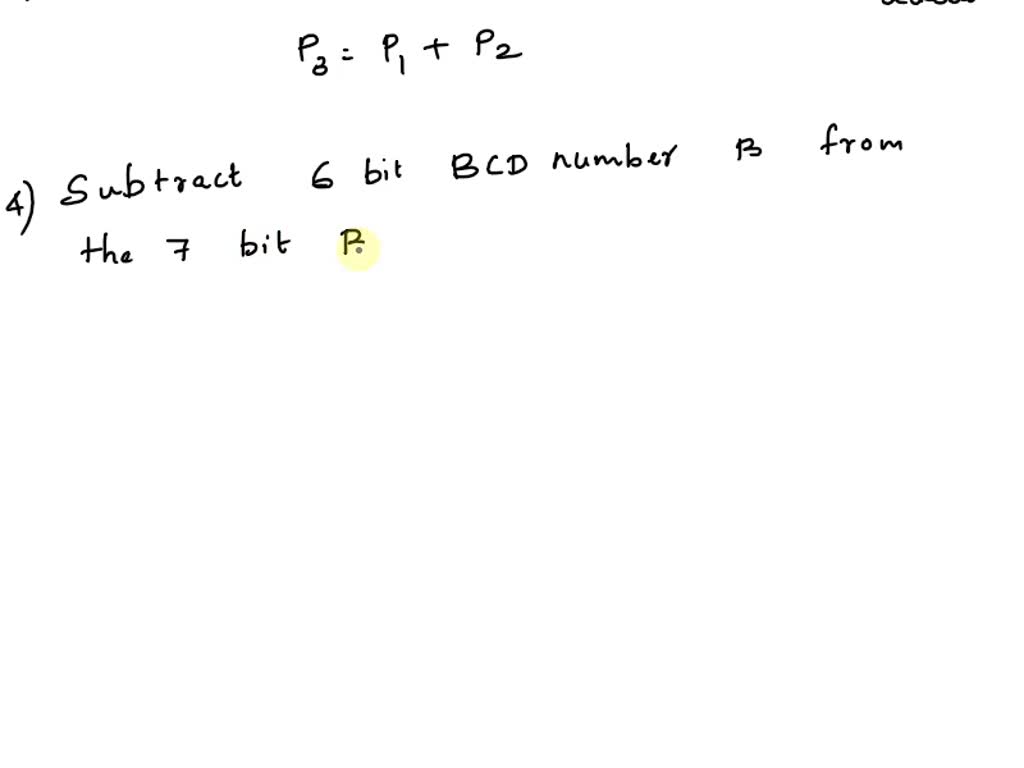 P3 = P1 + P2
4) Subtract 6 bit BCD number B from
the 7 bit B